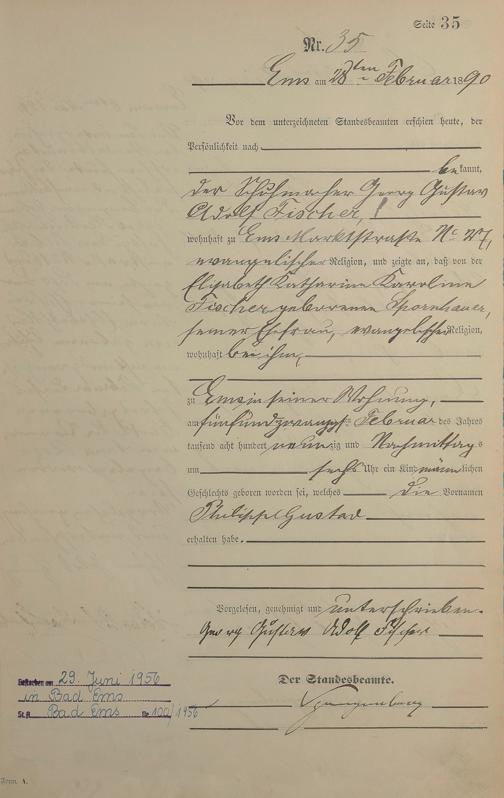 Seite 35
Nr. 35
Ems am 28ten Februar 1890
Vor dem unterzeichneten Standesbeamten erschien heute, der
Persönlichkeit nach
bekannt,
der Schuhmacher Georg Gustav
Adolf Fischer,
wohnhaft zu Ems Marktstraße No
evangelischer Religion, und zeigte an, daß von der
Elisabeth Katharine Karoline
Fischer geborenen Spornhauer,
seiner Ehefrau, evangelischer Religion,
wohnhaft bei ihm,
zu Ems in seiner Wohnung,
am fünfundzwanzigsten Februar des Jahres
tausend acht hundert neunzig und Nachmittags
um sechs Uhr ein Kind männlichen
Geschlechts geboren worden sei, welches die Vornamen
Philipp Gustav
erhalten habe.
Vorgelesen, genehmigt und unterschrieben.
Georg Gustav Adolf Fischer
Der Standesbeamte.
Spangenberg
Gestorben am 29. Juni 1956
in Bad Ems
St.A. Bad Ems Nr 100/1956
Form. A.